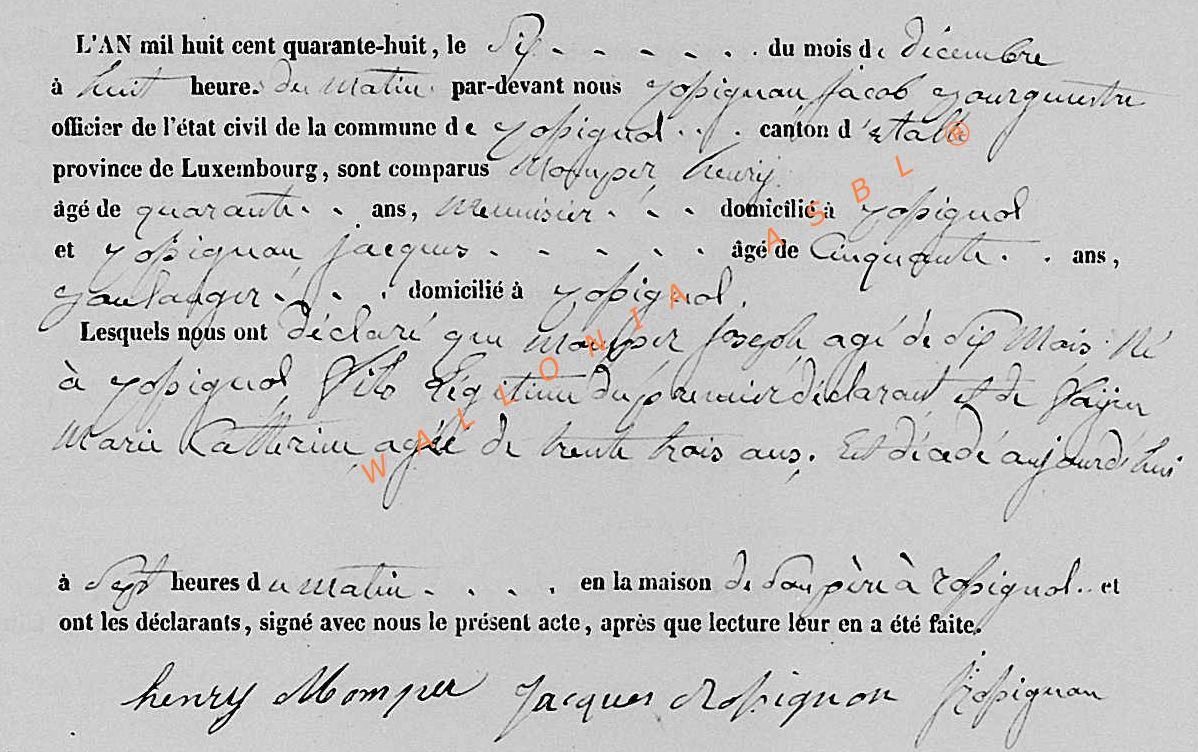 L'AN mil huit cent quarante-huit, le Six - - - - - . du mois de décembre
à huit heures du Matin. par-devant nous Rossignon Jacob Bourguestre
officier de l'état civil de la commune de Rossignol . . . canton d'Etalle
province de Luxembourg, sont comparus Momper henry.
âgé de quarante . . ans, Menuisier . - - domicilié à Rossignol
et Rossignon Jacques - - - - - . âgé de Cinquante . . ans,
Boulanger . . . . domicilié à Rossignol.
Lesquels nous ont déclaré que Momper Joseph agé de Six Mois Né
à Rossignol Fils Légitime du premier déclarant et de
Marie Catherine agée de trente trois ans. Est décédé aujourd'hui
à Sept heures du Matin - . . . en la maison de Son père à Rossignol .. et
ont les déclarants, signé avec nous le présent acte, après que lecture leur en a été faite.
henry Momper Jacques Rossignon JRossignon
WALLONIA ASBL ®